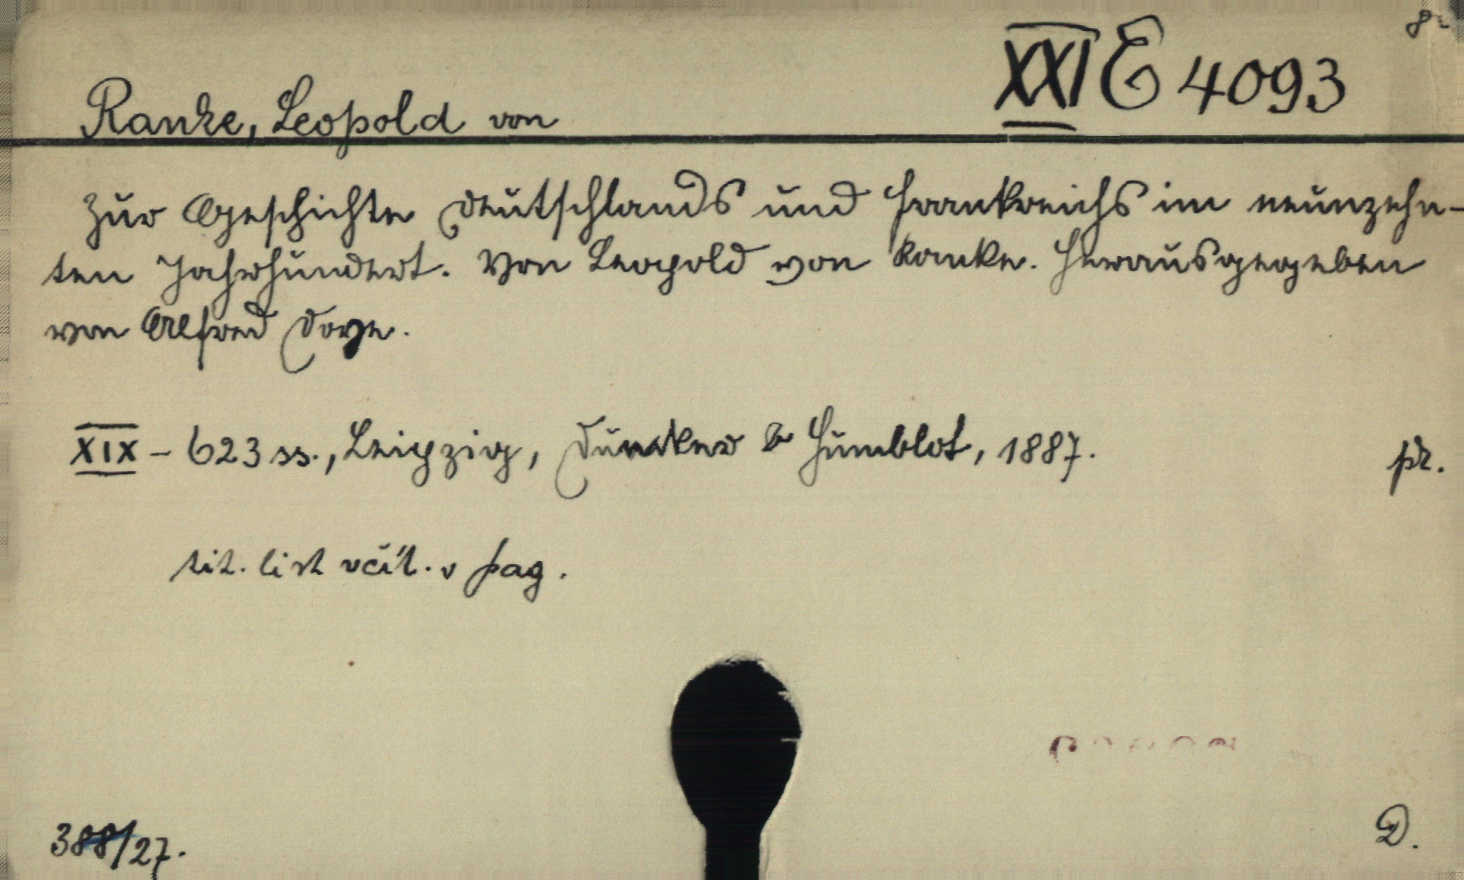 8°
XXI E 4093
Ranke, Leopold von
Zur Geschichte Deutschlands und Frankreichs im neunzehn-
ten Jahrhundert. Von Leopold von Ranke. Herausgegeben
von Alfred Dove.
XIX – 623 ss., Leipzig, Duncker & Humblot, 1887.
pr.
tit. list včít. v pag.
388/27.
D.